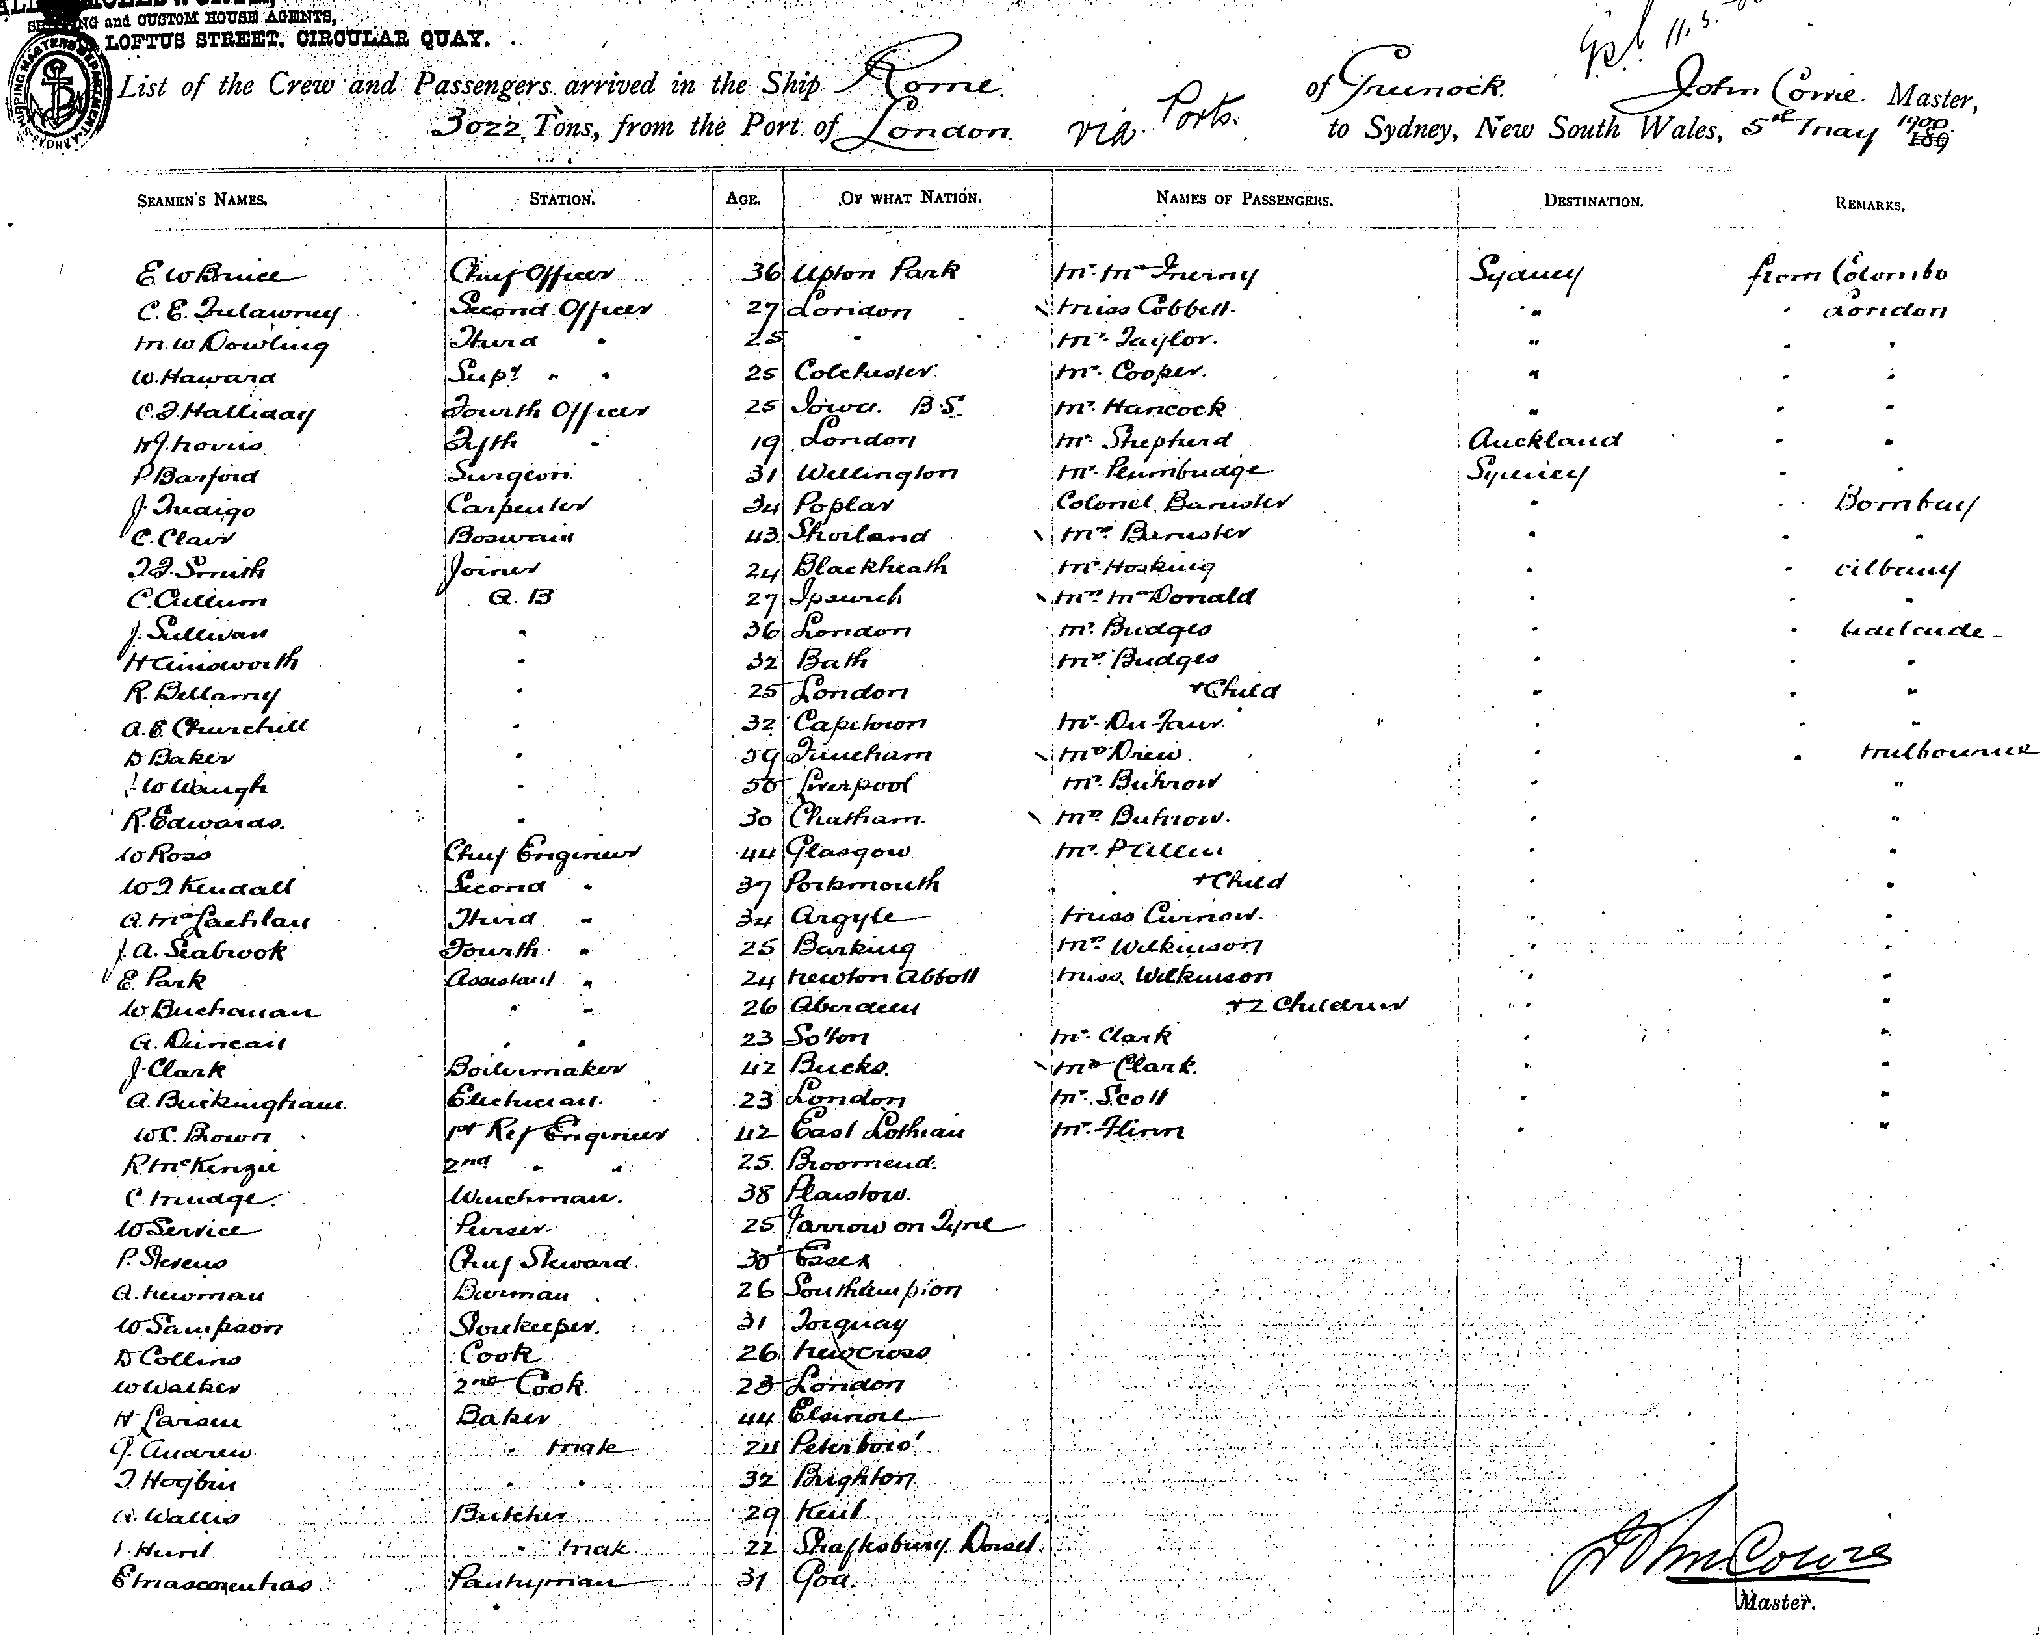 SHIPPING and CUSTOM HOUSE AGENTS,
LOFTUS STREET, CIRCULAR QUAY.
SHIPPING MASTER'S DEPARTMENT SYDNEY
List of the Crew and Passengers arrived in the Ship Rome of Greenock. John Master,
3022 Tons, from the Port of London via Ports. to Sydney, New South Wales, 5th May 1900
SEAMEN'S NAMES. STATION. AGE. OF WHAT NATION. NAMES OF PASSENGERS. DESTINATION. REMARKS.
E W Bruce Chief Officer 36 Upton Park Mr. Sydney from Colombo
C. E. Trelawney Second Officer 27 London Miss Cobbett. " " London
M W Dowling Third " 25 " Mr. Taylor. " " "
W. Haward Supy " " 25 Colchester. Mr. Cooper. " " "
C. F. Halliday Fourth Officer 25 Iowa. B.S. Mr. Hancock " " "
Fifth " 19 London Mr Shepherd Auckland " "
P Barford Surgeon. 31 Wellington Mr. Sydney " "
J. Carpenter 34 Poplar Colonel Banister " " Bombay
C. Clair Boswain 43 Mrs Banister " " "
F. F. Smith Joiner 24 Blackheath Mr. Hosking " " Albany
C. Cullum A. B 27 Ipswich Mrs McDonald " " "
J. Sullivan " 36 London Mr. Bridges " " Adelaide
H Ainsworth " 32 Bath Mrs. Bridges " " "
R. Bellamy " 25 London + Child " " "
A. E. Churchill " 32 Capetown Mr. Du Faur. " " "
D Baker " 39 Fincham Mrs Drew. " " Melbourne
J W Waugh " 50 Liverpool Mr. Buhrow " "
R. Edwards. " 30 Chatham. Mrs. Buhrow. " "
W Ross Chief Engineer 44 Glasgow Mr. P Allen " "
W F Kendall Second " 37 Portsmouth + Child " "
A. McLachlan Third " 34 Argyle Miss Curnow. " "
J. A. Seabrook Fourth " 25 Barking Mrs. Wilkinson " "
E. Park Assistant " 24 Newton Abbott Miss Wilkinson " "
W Buchanan " " 26 Aberdeen + 2 Children " "
G. Duncan " " 23 So'ton Mr. Clark " "
J. Clark Boilermaker 42 Bucks. Mrs Clark. " "
A. Buckingham. Electrician. 23 London Mr. Scott " "
W C. Brown 1st Ref Engineer 42 East Lothian Mr. Flinn " "
R. McKenzie 2nd " " 25. Broomend.
C Mudge. Winchman. 38 Plaistow.
W Service Purser. 25 Jarrow on Tyne
P. Stevens Chief Steward. 30 Essex
A. Newman Barman 26 Southampton
W Sampson Storekeeper. 31 Torquay
D Collins Cook 26 New Cross
W Walker 2nd Cook. 23 London
H Larsen Baker 44 Elsinore
J. Andrew " Mate 24 Peterboro'
F Hogbin " " 32 Brighton
A. Wallis Butcher 29 Kent
" Mate 22 Shaftesbury Dorset.
E Mascarenhas Pantryman 31 Goa.
Master.